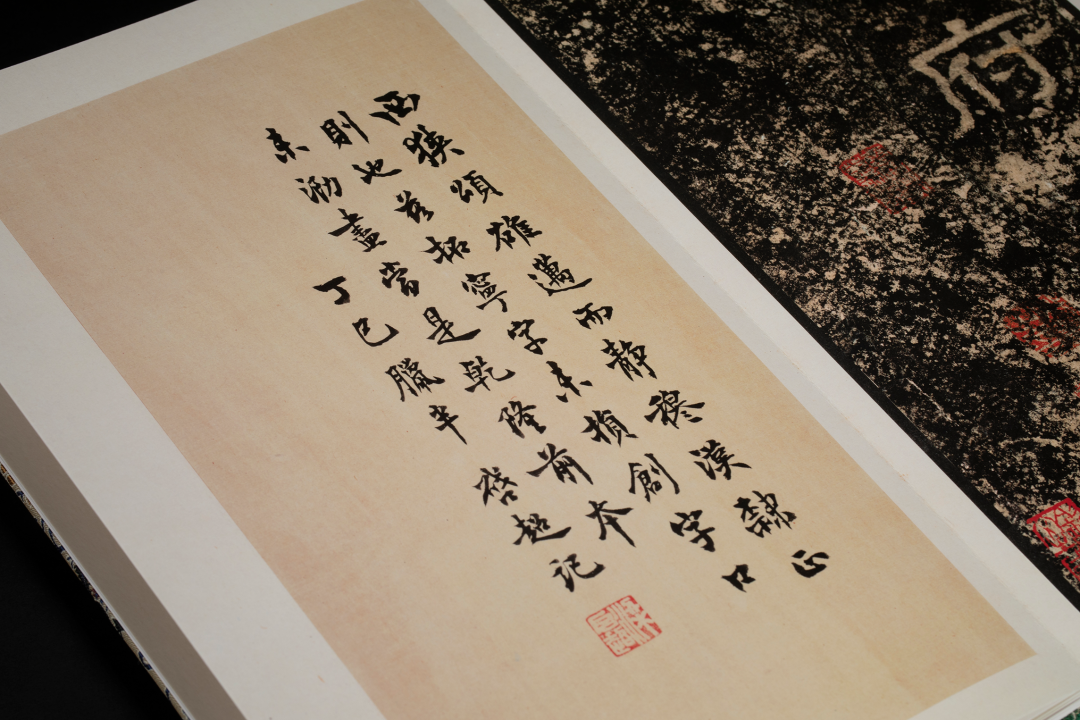 府
西狹頌雄邁而靜穆漢隸正
則也茲拓寧字未損創字口
未泐盡當是乾隆前本
丁巳臘半 啓超記